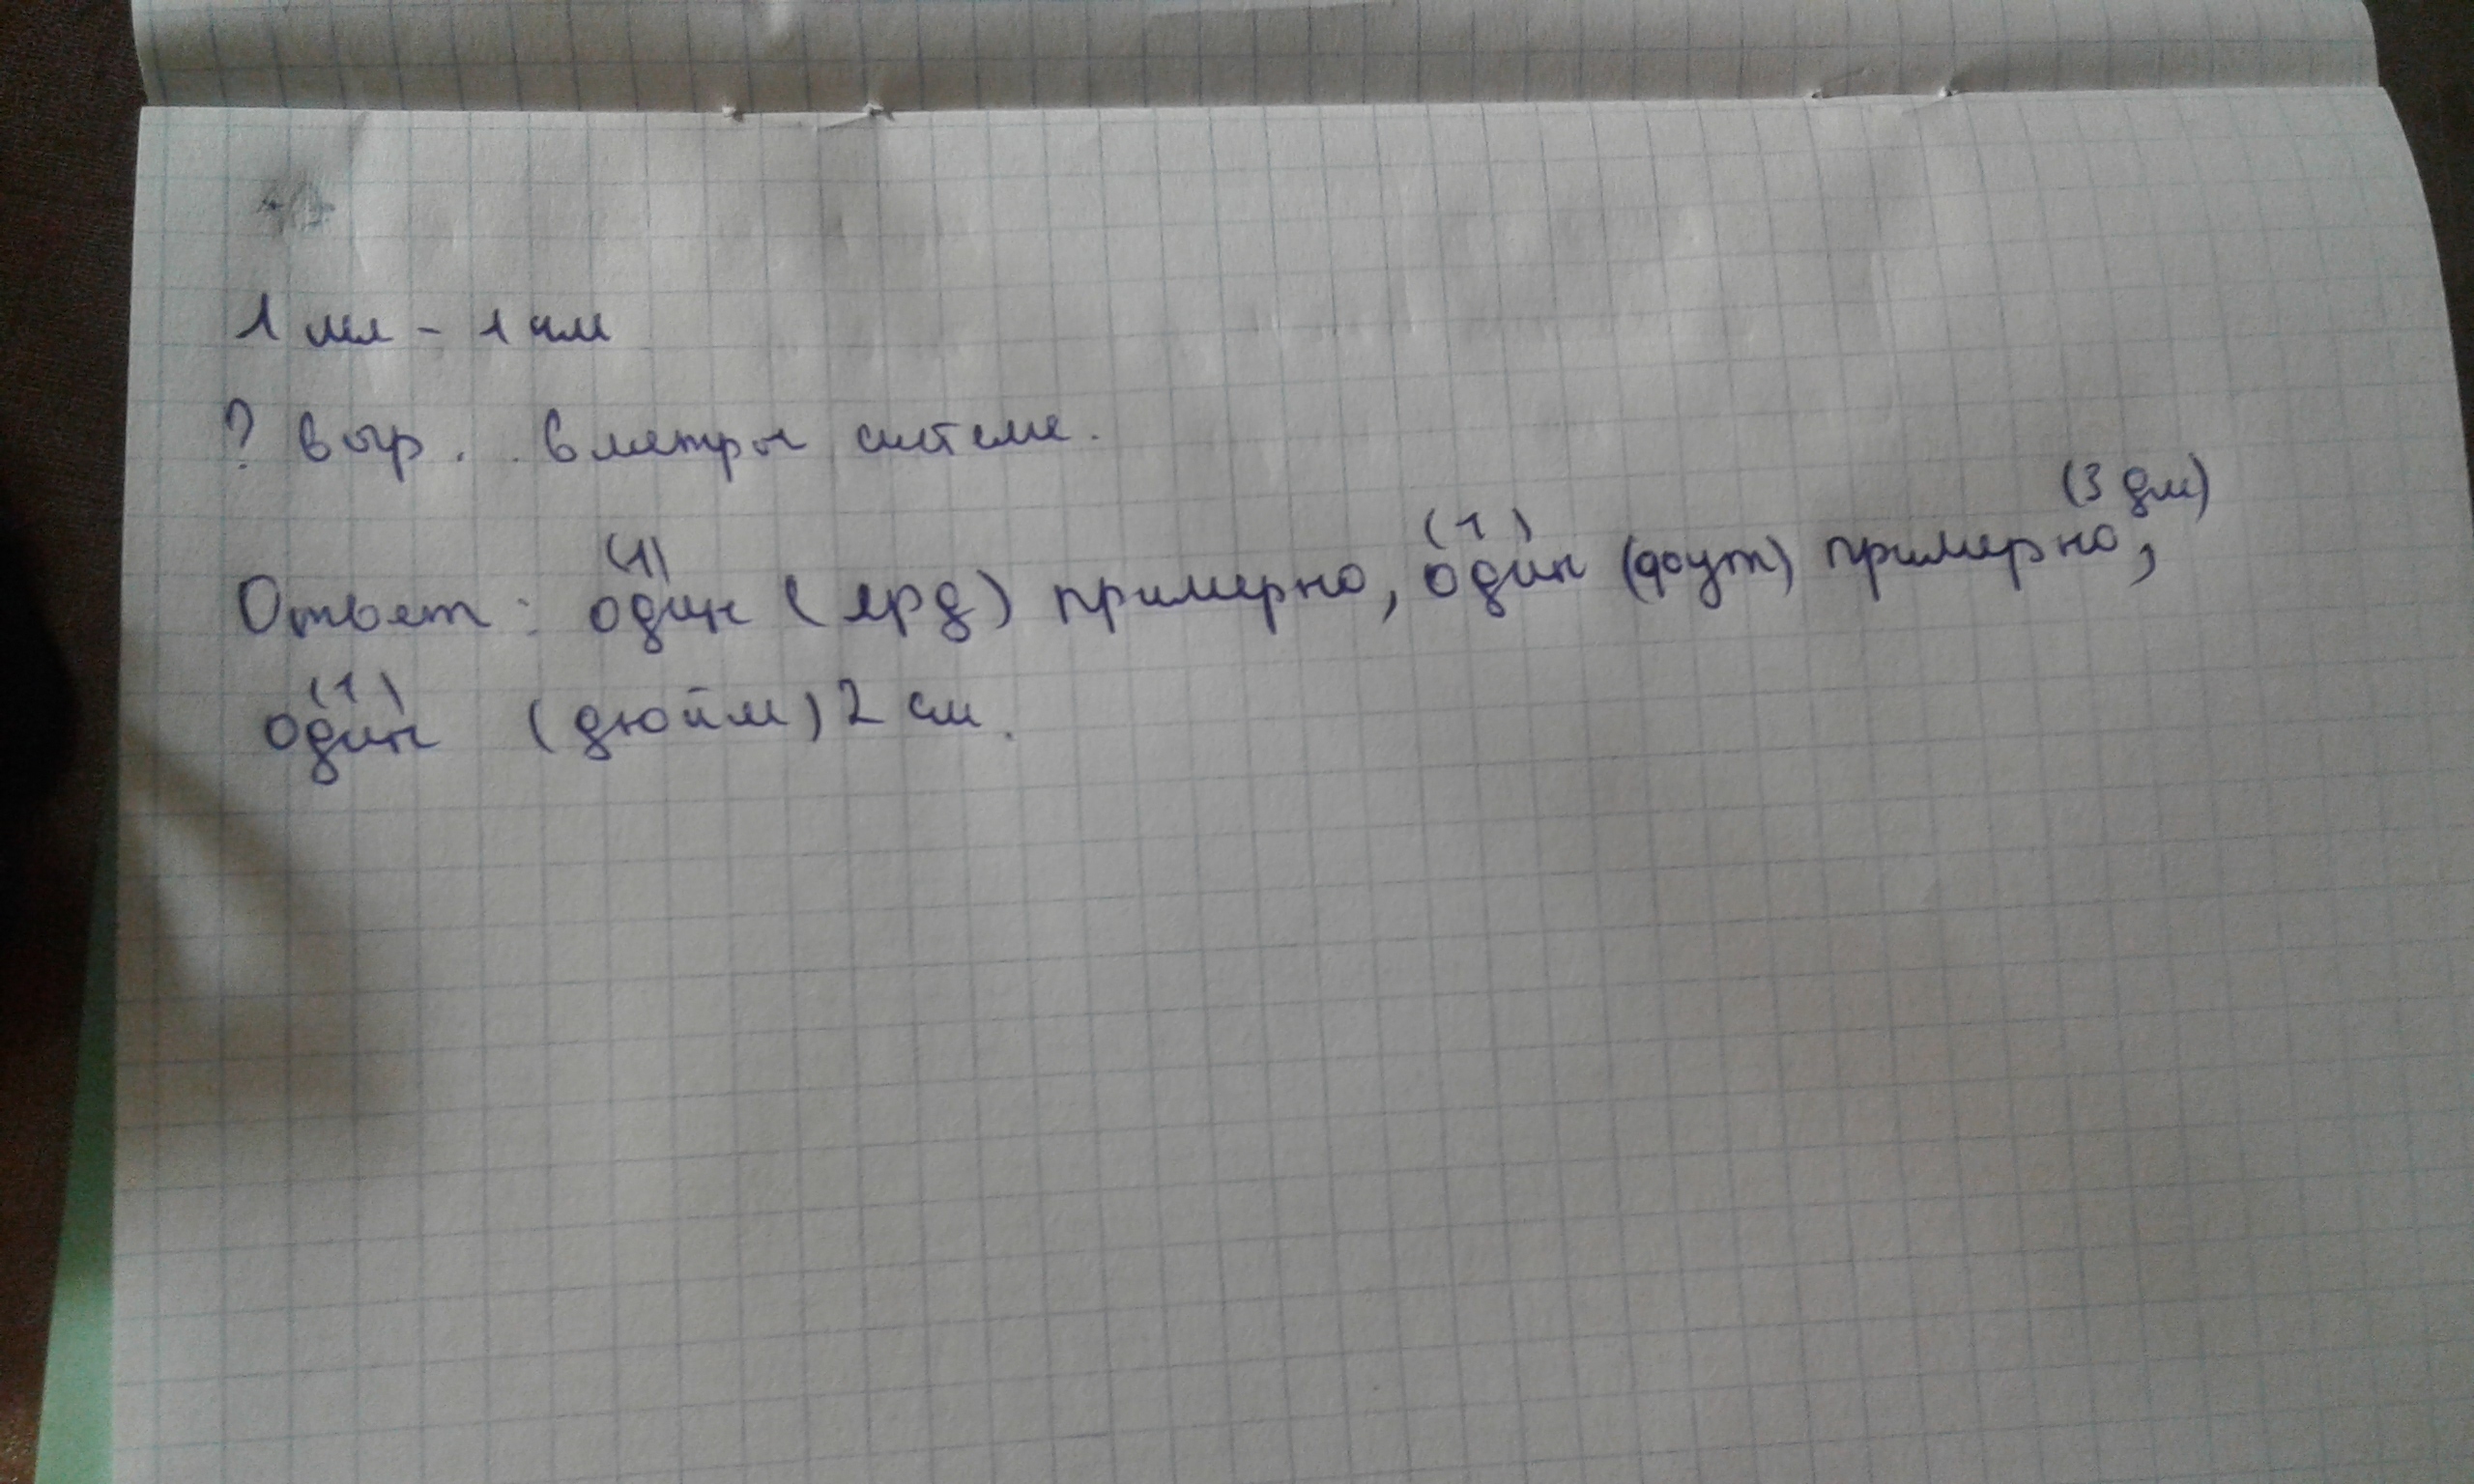 1 мл - 1 чм
? выр. . . в метры системе.
Ответ: один (1) (ярд) примерно, один (1) (фут) примерно, (3 дм)
один (1) (дюйм) 2 см.